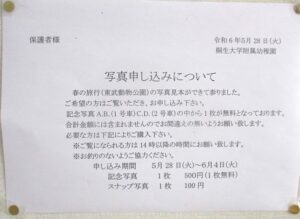 保護者様
令和6年5月28日(火)
桐生大学附属幼稚園
写真申し込みについて
春の旅行(東武動物公園)の写真見本ができて参りました。
ご希望の方はご覧いただき、お申し込み下さい。
記念写真A.B.(1号車)C.D.(2号車)の中から1枚が無料となっております。
合計金額には含まれませんのでお間違えの無いようお願い致します。
必要な方は下記によりご購入下さい。
※ご覧になられる方は14時以降の時間にお願い致します。
※お釣りのないようご協力ください。
申し込み期間 5月28日(火)~6月4日(火)
記念写真 1枚 500円(1枚無料)
スナップ写真 1枚 100円